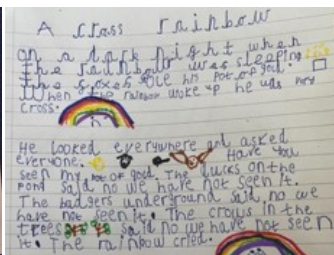 A cross rainbow
on a dark night when
the rainbow was sleeping
the foxes stole his pot of gold.
When the rainbow woke up he was very
cross.
He looked everywhere and asked
everyone. Have you
seen my pot of gold. The ducks on the
pond said no we have not seen it.
The badgers underground said, no we
have not seen it. The crows in the
trees said no we have not seen
it. The rainbow cried.